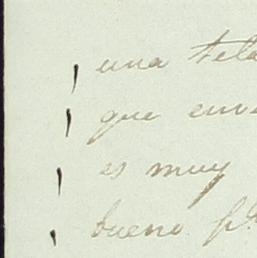 una tela
que env
es muy
bueno pa